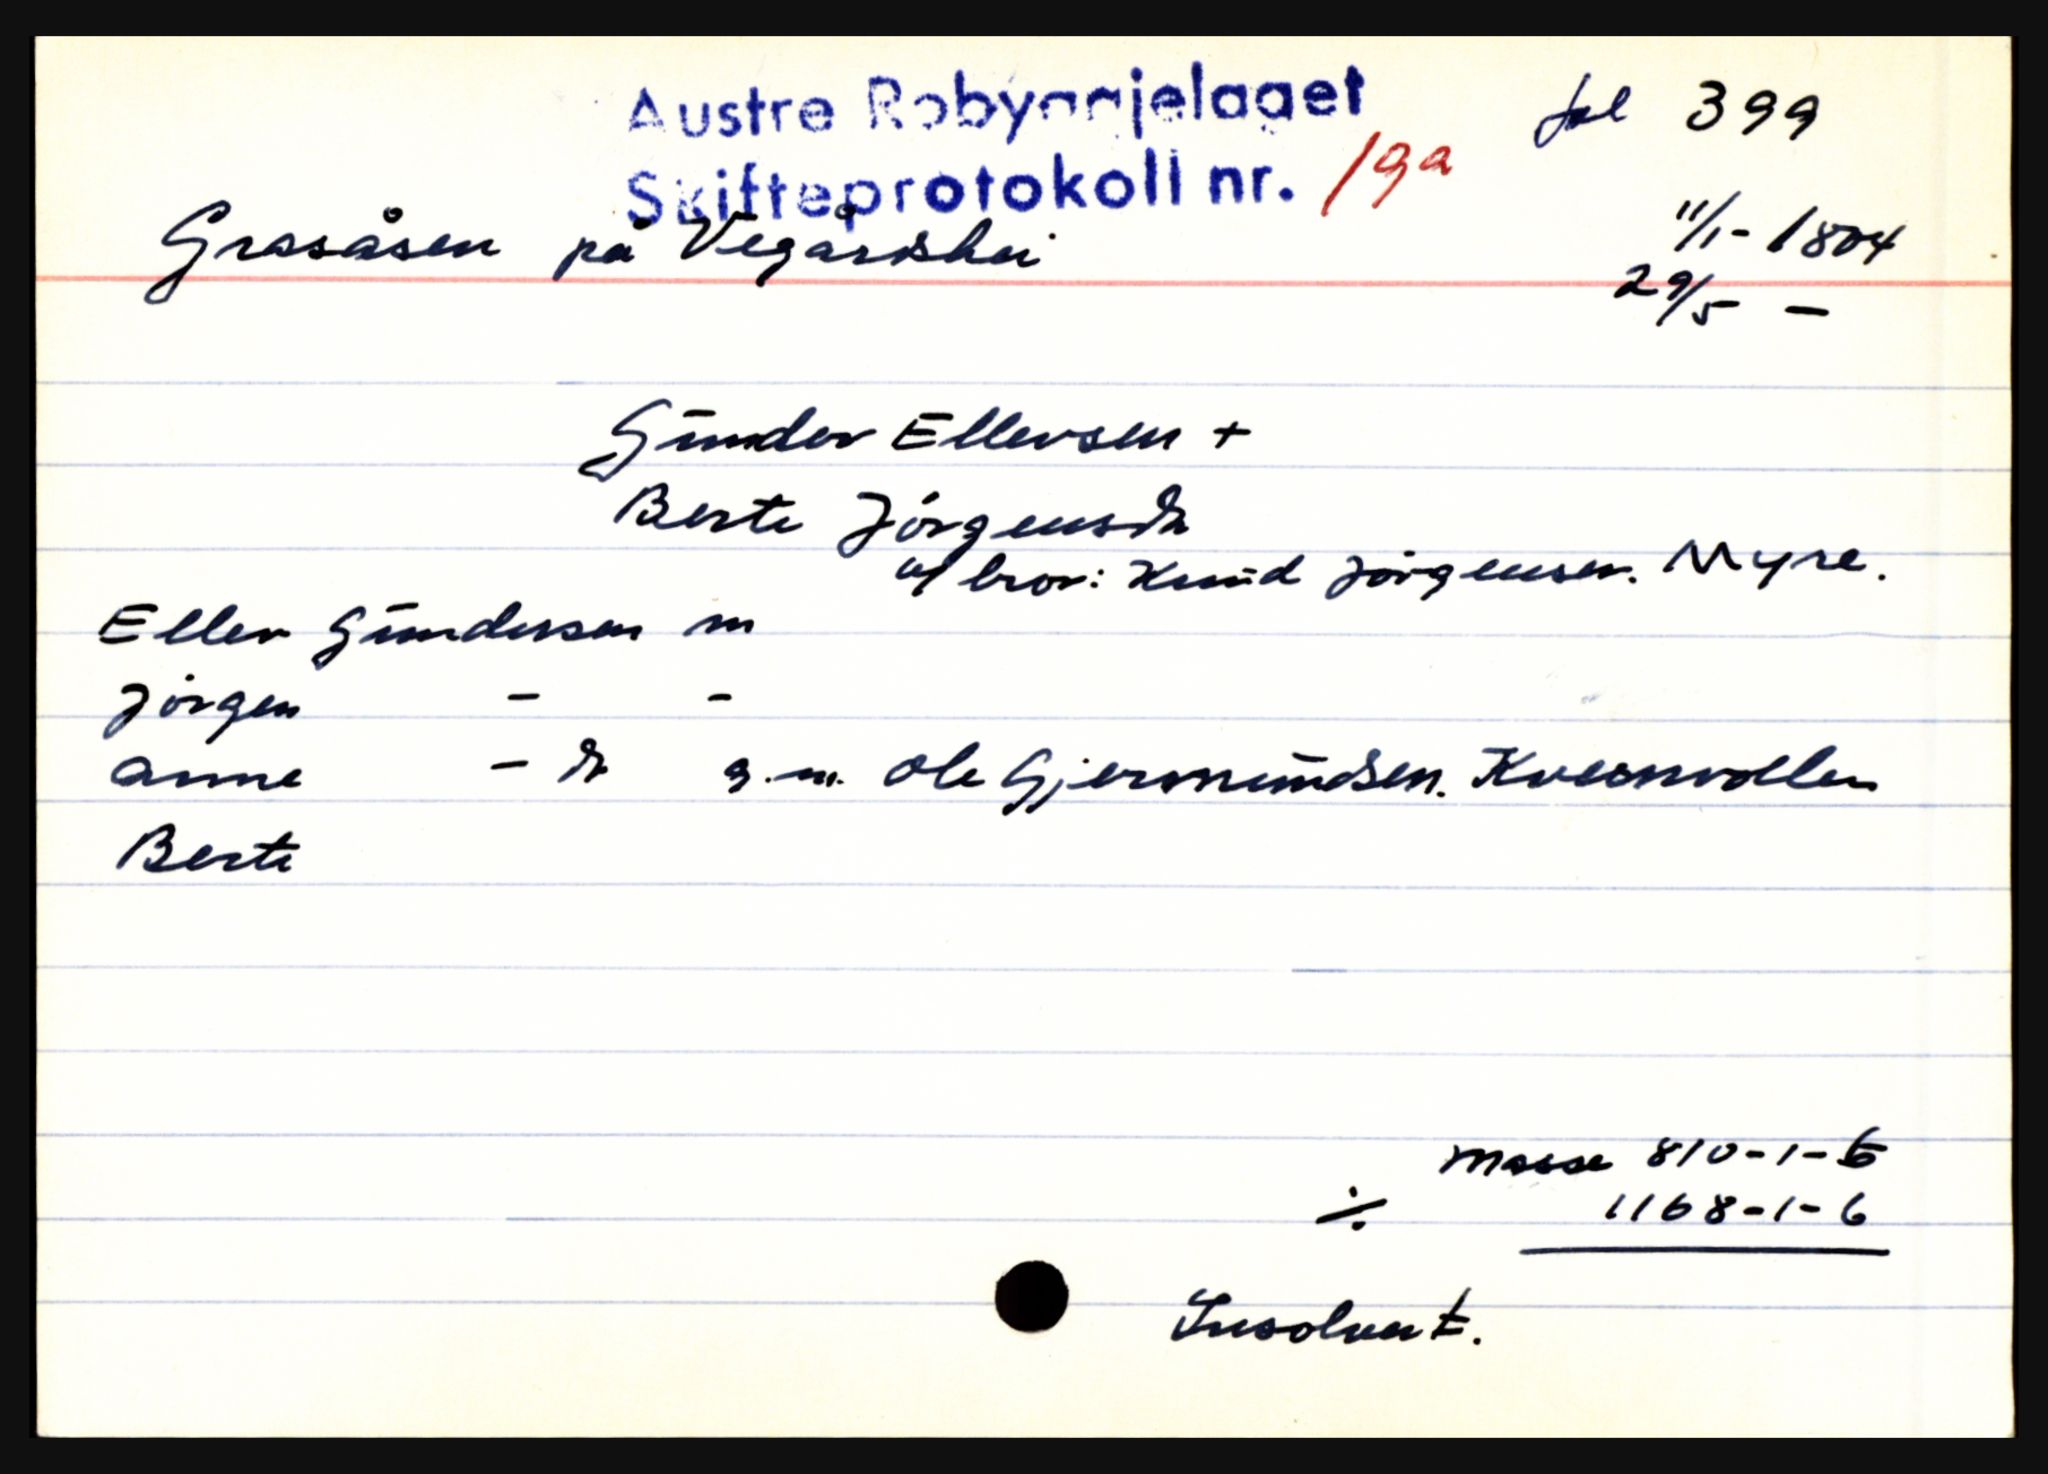 Austre Robyggjelaget
Skifteprotokoll nr. 19a
fol 399
Grasåsen på Vegårdshei
11/1- 1804
29/5 -
Gunder Ellevsen +
Berte Jørgensdr
v/ bror: Knud Jørgensen. Myre.
Ellev Gundersen m
Jørgen - -
Anne - dr g.m. Ole Gjermundsen. Kvesnvollen
Berte
Masse 810-1-6
÷ 1168-1-6
Insolvent.